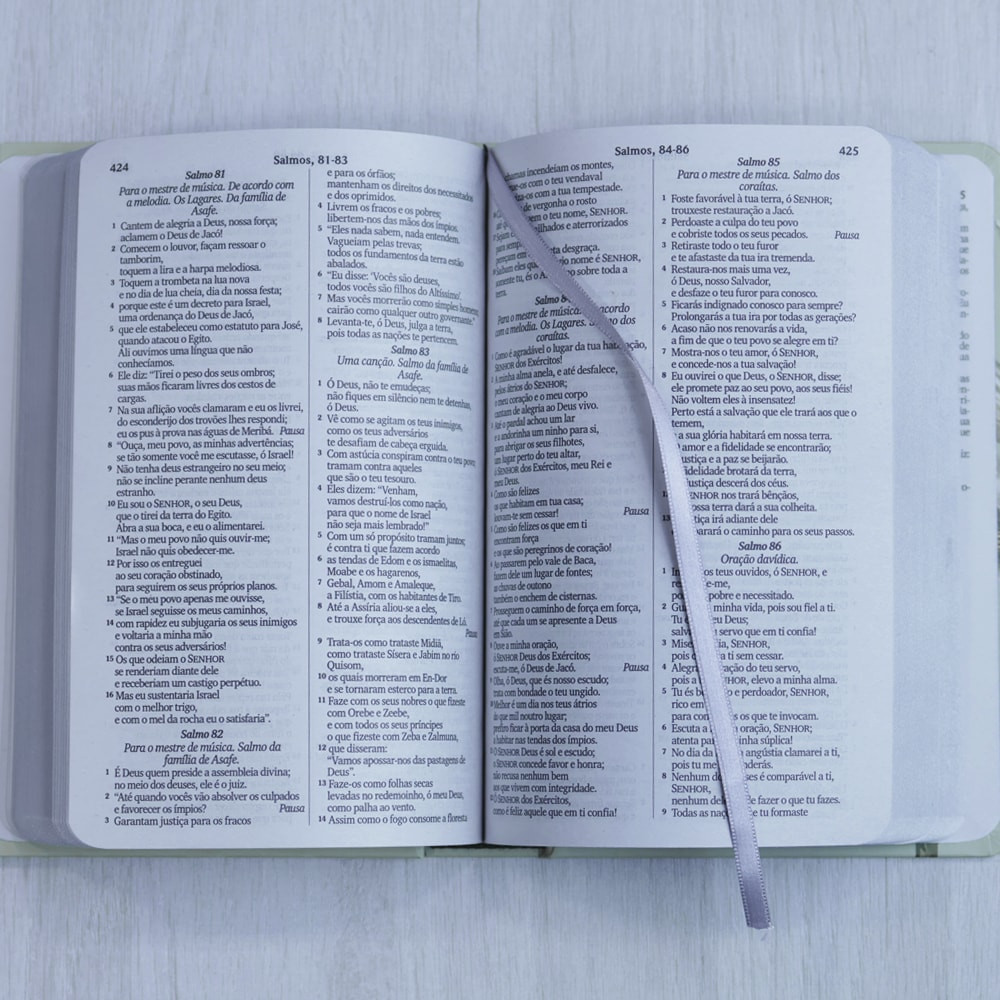 424
Salmos, 81-83
Salmo 81
Para o mestre de música. De acordo com
a melodia. Os Lagares. Da família de
Asafe.
1 Cantem de alegria a Deus, nossa força;
aclamem o Deus de Jacó!
2 Comecem o louvor, façam ressoar o
tamborim,
toquem a lira e a harpa melodiosa.
3 Toquem a trombeta na lua nova
e no dia de lua cheia, dia da nossa festa;
4 porque este é um decreto para Israel,
uma ordenança do Deus de Jacó,
5 que ele estabeleceu como estatuto para José,
quando atacou o Egito.
Ali ouvimos uma língua que não
conhecíamos.
6 Ele diz: “Tirei o peso dos seus ombros;
suas mãos ficaram livres dos cestos de
cargas.
7 Na sua aflição vocês clamaram e eu os livrei,
do esconderijo dos trovões lhes respondi;
eu os pus à prova nas águas de Meribá. Pausa
8 “Ouça, meu povo, as minhas advertências;
se tão somente você me escutasse, ó Israel!
9 Não tenha deus estrangeiro no seu meio;
não se incline perante nenhum deus
estranho.
10 Eu sou o SENHOR, o seu Deus,
que o tirei da terra do Egito.
Abra a sua boca, e eu o alimentarei.
11 “Mas o meu povo não quis ouvir-me;
Israel não quis obedecer-me.
12 Por isso os entreguei
ao seu coração obstinado,
para seguirem os seus próprios planos.
13 “Se o meu povo apenas me ouvisse,
se Israel seguisse os meus caminhos,
14 com rapidez eu subjugaria os seus inimigos
e voltaria a minha mão
contra os seus adversários!
15 Os que odeiam o SENHOR
se renderiam diante dele
e receberiam um castigo perpétuo.
16 Mas eu sustentaria Israel
com o melhor trigo,
e com o mel da rocha eu o satisfaria”.
Salmo 82
Para o mestre de música. Salmo da
família de Asafe.
1 É Deus quem preside a assembleia divina;
no meio dos deuses, ele é o juiz.
2 “Até quando vocês vão absolver os culpados
e favorecer os ímpios? Pausa
3 Garantam justiça para os fracos
e para os órfãos;
mantenham os direitos dos necessitados
e dos oprimidos.
4 Livrem os fracos e os pobres;
libertem-nos das mãos dos ímpios.
5 “Eles nada sabem, nada entendem.
Vagueiam pelas trevas;
todos os fundamentos da terra estão
abalados.
6 “Eu disse: ‘Vocês são deuses,
todos vocês são filhos do Altíssimo’.
7 Mas vocês morrerão como simples homens;
cairão como qualquer outro governante.”
8 Levanta-te, ó Deus, julga a terra,
pois todas as nações te pertencem.
Salmo 83
Uma canção. Salmo da família de
Asafe.
1 Ó Deus, não te emudeças;
não fiques em silêncio nem te detenhas,
ó Deus.
2 Vê como se agitam os teus inimigos,
como os teus adversários
te desafiam de cabeça erguida.
3 Com astúcia conspiram contra o teu povo;
tramam contra aqueles
que são o teu tesouro.
4 Eles dizem: “Venham,
vamos destruí-los como nação,
para que o nome de Israel
não seja mais lembrado!”
5 Com um só propósito tramam juntos;
é contra ti que fazem acordo
6 as tendas de Edom e os ismaelitas,
Moabe e os hagarenos,
7 Gebal, Amom e Amaleque,
a Filístia, com os habitantes de Tiro.
8 Até a Assíria aliou-se a eles,
e trouxe força aos descendentes de Ló.
9 Trata-os como trataste Midiã,
como trataste Sísera e Jabim no rio
Quisom,
10 os quais morreram em En-Dor
e se tornaram esterco para a terra.
11 Faze com os seus nobres o que fizeste
com Orebe e Zeebe,
e com todos os seus príncipes
o que fizeste com Zeba e Zalmuna,
12 que disseram:
“Vamos apossar-nos das pastagens de
Deus”.
13 Faze-os como folhas secas
levadas no redemoinho, ó meu Deus,
como palha ao vento.
14 Assim como o fogo consome a floresta
Salmos, 84-86
425
incendeiam os montes,
com o teu vendaval
com a tua tempestade.
de vergonha o rosto
o teu nome, SENHOR.
e aterrorizados
desgraça.
nome é SENHOR,
sobre toda a
terra.
Salmo
Para o mestre de música.
com a melodia. Os Lagares. dos
coraítas.
Como é agradável o lugar da tua
SENHOR dos Exércitos!
A minha alma anela, e até desfalece,
pelos átrios do SENHOR;
o meu coração e o meu corpo
cantam de alegria ao Deus vivo.
Até o pardal achou um lar
e a andorinha um ninho para si,
para abrigar os seus filhotes,
um lugar perto do teu altar,
ó SENHOR dos Exércitos, meu Rei e
meu Deus.
Como são felizes
os que habitam em tua casa;
louvam-te sem cessar! Pausa
Como são felizes os que em ti
encontram força
e os que são peregrinos de coração!
Ao passarem pelo vale de Baca,
fazem dele um lugar de fontes;
as chuvas de outono
também o enchem de cisternas.
Prosseguem o caminho de força em força,
até que cada um se apresente a Deus
em Sião.
Ouve a minha oração,
ó SENHOR Deus dos Exércitos;
escuta-me, ó Deus de Jacó. Pausa
Olha, ó Deus, que és nosso escudo;
trata com bondade o teu ungido.
Melhor é um dia nos teus átrios
do que mil noutro lugar;
prefiro ficar à porta da casa do meu Deus
a habitar nas tendas dos ímpios.
O SENHOR Deus é sol e escudo;
o SENHOR concede favor e honra;
não recusa nenhum bem
aos que vivem com integridade.
Ó SENHOR dos Exércitos,
como é feliz aquele que em ti confia!
Salmo 85
Para o mestre de música. Salmo dos
coraítas.
1 Foste favorável à tua terra, ó SENHOR;
trouxeste restauração a Jacó.
2 Perdoaste a culpa do teu povo
e cobriste todos os seus pecados. Pausa
3 Retiraste todo o teu furor
e te afastaste da tua ira tremenda.
4 Restaura-nos mais uma vez,
ó Deus, nosso Salvador,
e desfaze o teu furor para conosco.
5 Ficarás indignado conosco para sempre?
Prolongarás a tua ira por todas as gerações?
6 Acaso não nos renovarás a vida,
a fim de que o teu povo se alegre em ti?
7 Mostra-nos o teu amor, ó SENHOR,
e concede-nos a tua salvação!
8 Eu ouvirei o que Deus, o SENHOR, disse;
ele promete paz ao seu povo, aos seus fiéis!
Não voltem eles à insensatez!
Perto está a salvação que ele trará aos que o
temem,
a sua glória habitará em nossa terra.
amor e a fidelidade se encontrarão;
e a paz se beijarão.
brotará da terra,
descerá dos céus.
SENHOR nos trará bênçãos,
terra dará a sua colheita.
irá adiante dele
o caminho para os seus passos.
Salmo 86
Oração davídica.
1 os teus ouvidos, ó SENHOR, e
pobre e necessitado.
2 minha vida, pois sou fiel a ti.
Tu meu Deus;
servo que em ti confia!
3 SENHOR,
pois a ti sem cessar.
4 do teu servo,
pois a elevo a minha alma.
5 Tu és e perdoador, SENHOR,
rico em
para com os que te invocam.
6 Escuta a oração, SENHOR;
atenta súplica!
7 No dia da angústia clamarei a ti,
pois tu me
8 Nenhum é comparável a ti,
SENHOR,
nenhum fazer o que tu fazes.
9 Todas as tu formaste